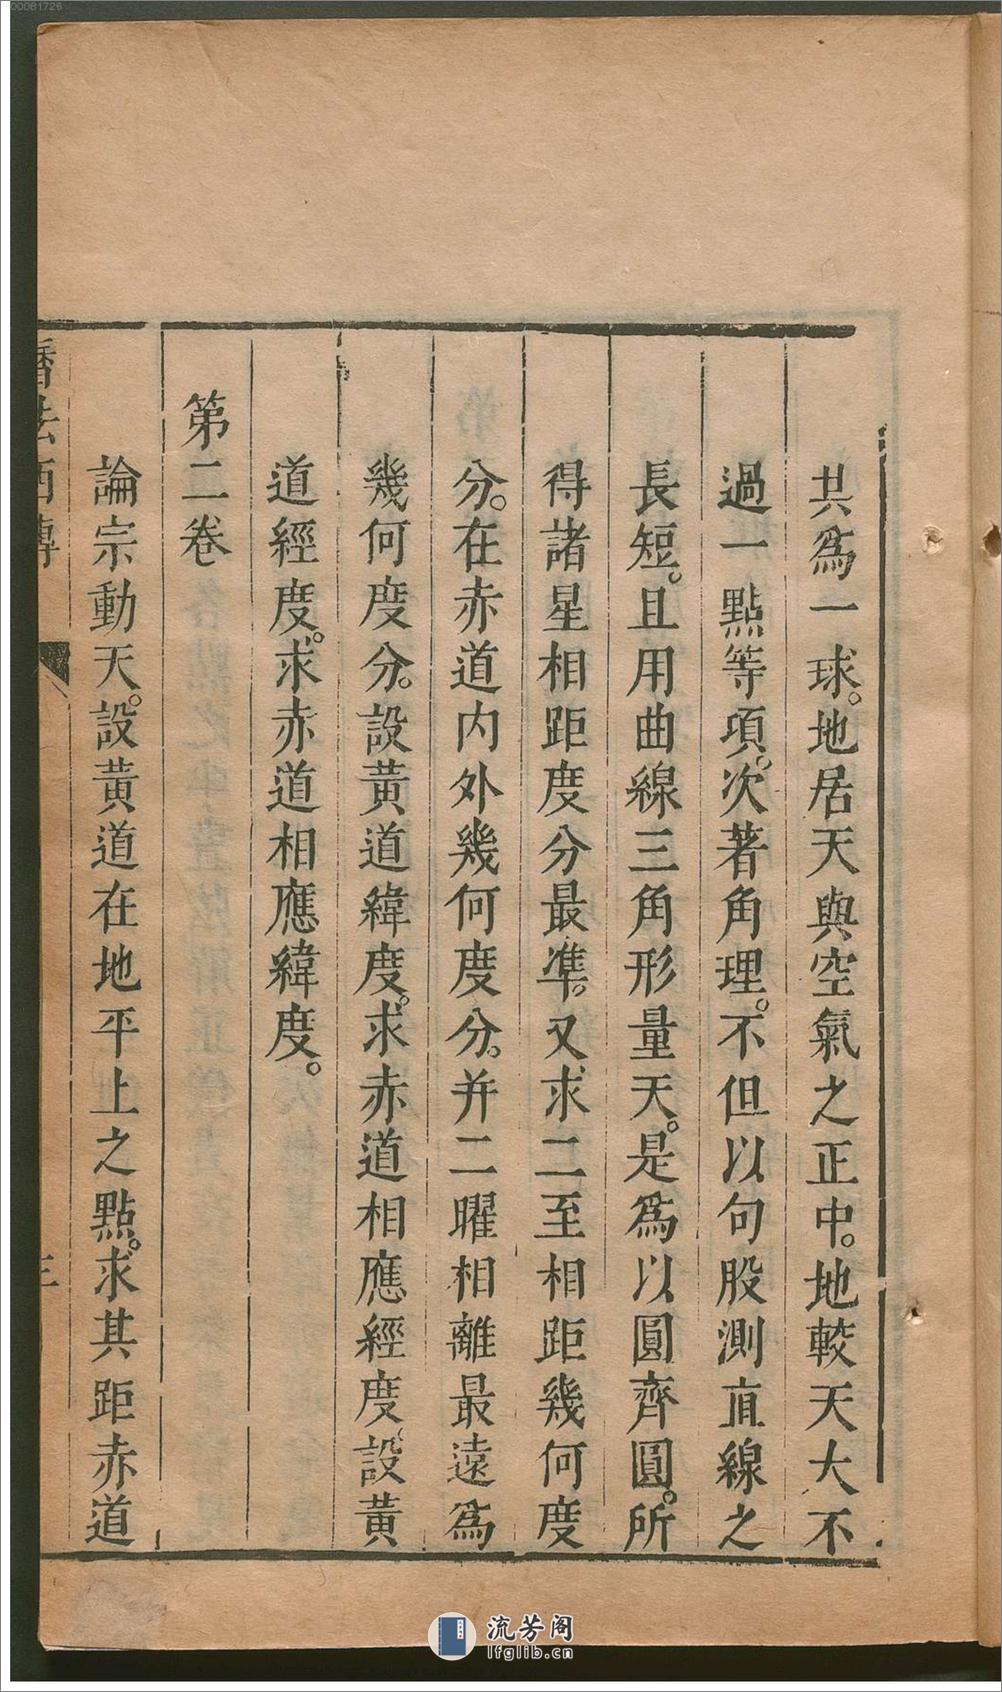 共爲一球。地居天與空氣之正中。地較天大不
過一點等項。次著角理。不但以句股測直線之
長短。且用曲線三角形量天。是爲以圓齊圓。所
得諸星相距度分最準。又求二至相距幾何度
分。在赤道内外幾何度分。并二曜相離最遠爲
幾何度分。設黃道緯度。求赤道相應經度、設黃
道經度。求赤道相應緯度。
第二卷
論宗動天。設黃道在地平上之點。求其距赤道
曆法西傳
三
00081726
流芳阁
lfglib.cn